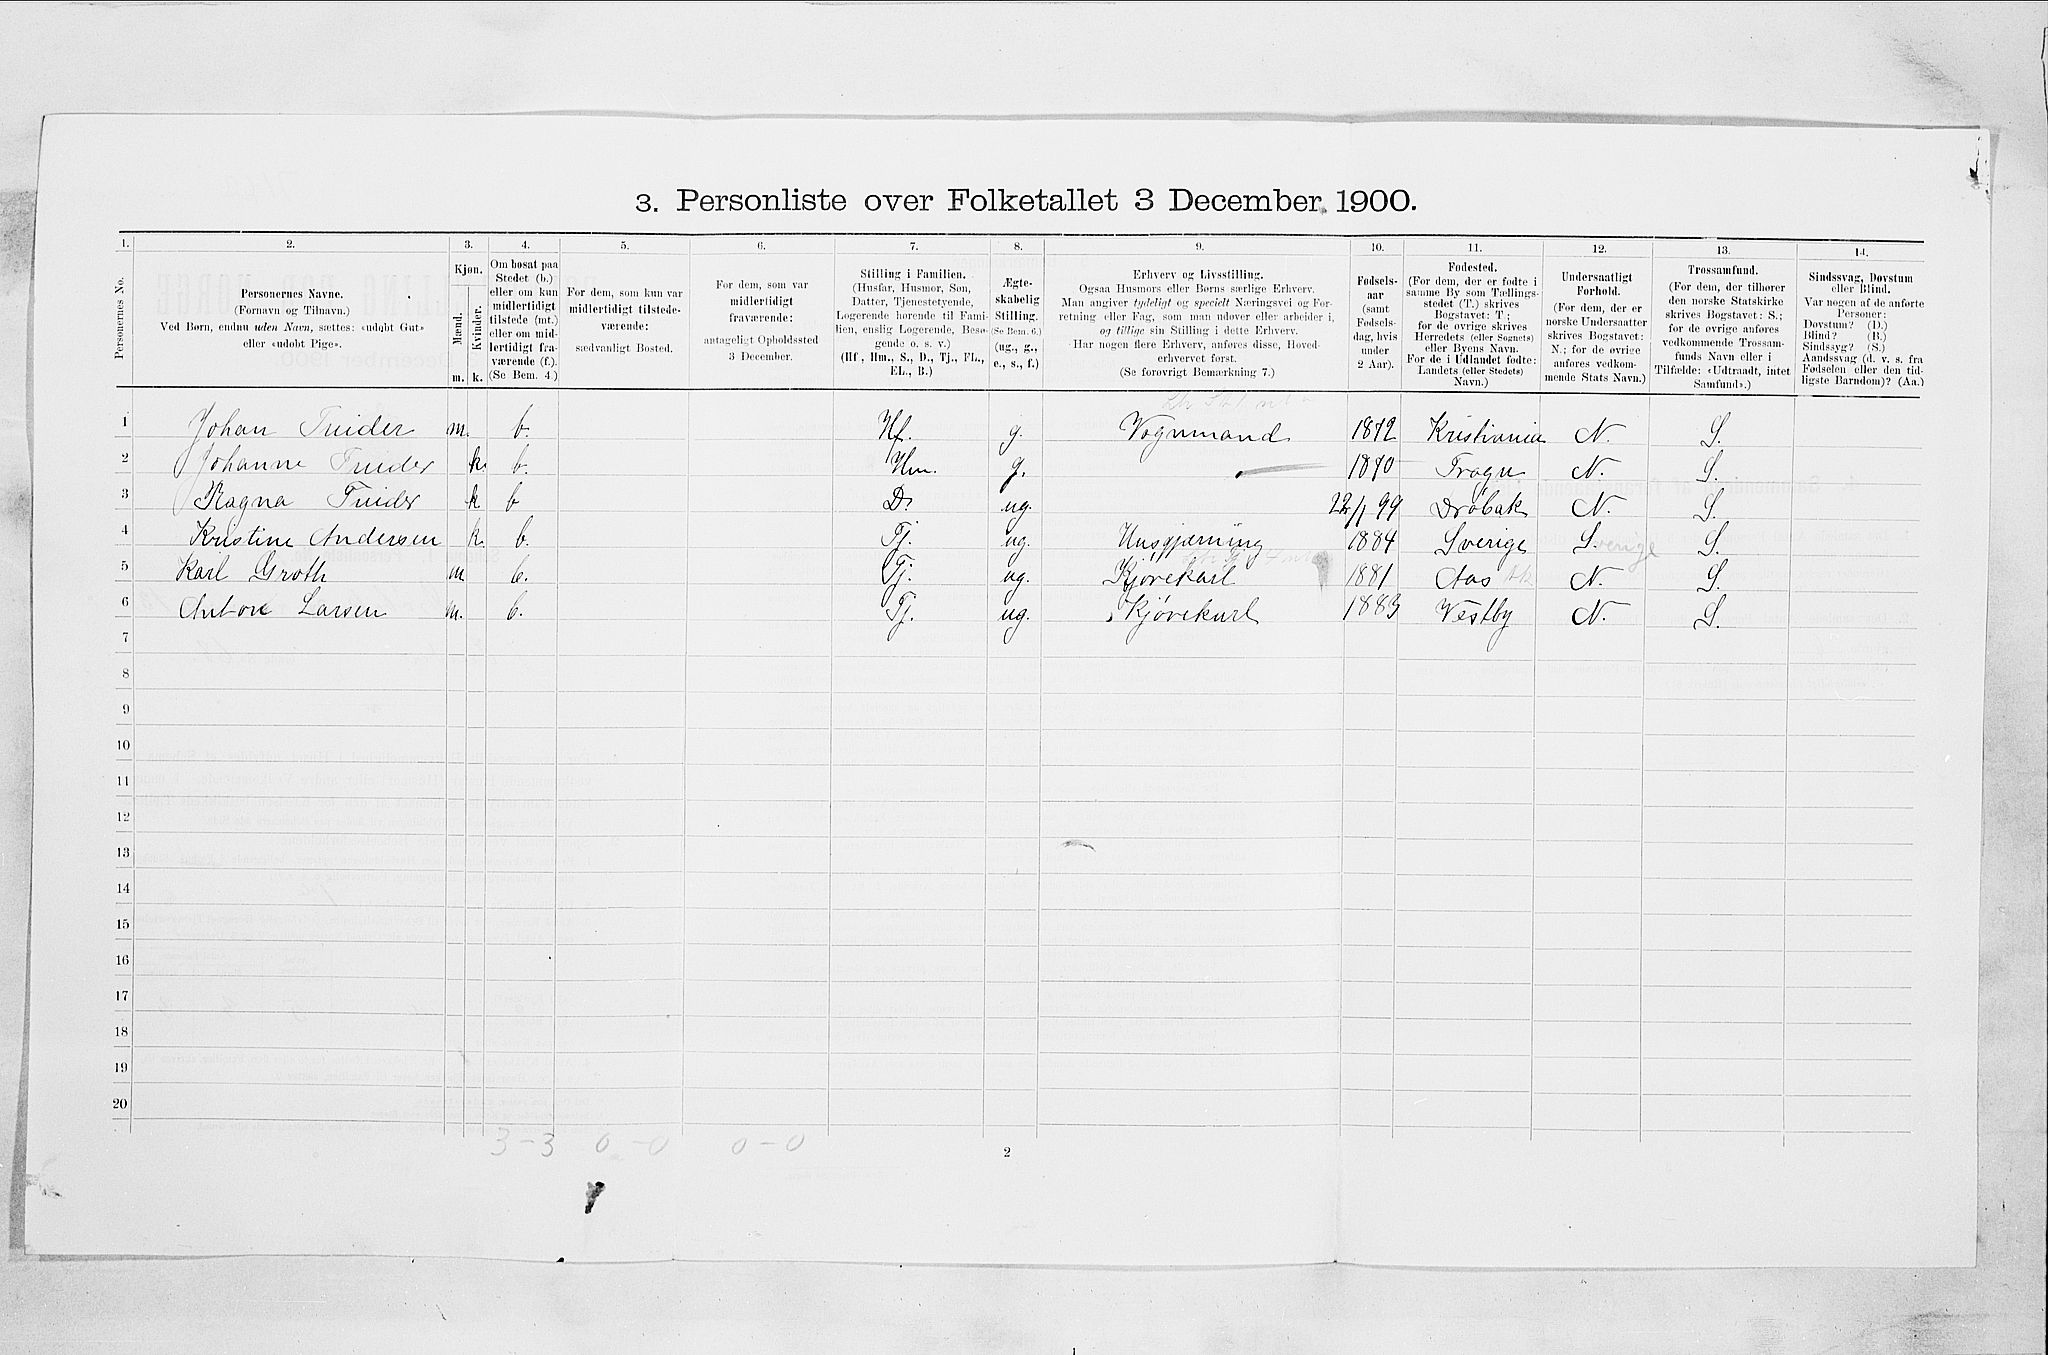 3. Personliste over Folketallet 3 December 1900.
1. 2. 3. 4. 5. 6. 7. 8. 9. 10. 11. 12. 13. 14.
Personernes No.
Personernes Navne.
(Fornavn og Tilnavn.)
Ved Børn, endnu uden Navn, sættes: «udøbt Gut»
eller «udøbt Pige».
Kjøn.
Mænd.
Kvinder.
m. k.
Om bosat paa
Stedet (b.)
eller om kun
midlertidigt
tilstede (mt.)
eller om mid-
lertidigt fra-
værende (f.).
(Se Bem. 4.)
For dem, som kun var
midlertidigt tilstede-
værende:
sædvanligt Bosted.
For dem, som var
midlertidigt
fraværende:
antageligt Opholdssted
3 December.
Stilling i Familien.
(Husfar, Husmor, Søn,
Datter, Tjenestetyende,
Logerende hørende til Fami-
lien, enslig Logerende, Besø-
gende o. s. v.)
(Hf., Hm., S., D., Tj., FL.,
EL., B.)
Ægte-
skabelig
Stilling.
(Se Bem. 6.)
(ug., g.,
e., s., f.)
Erhverv og Livsstilling.
Ogsaa Husmors eller Børns særlige Erhverv.
Man angiver tydeligt og specielt Næringsvei og For-
retning eller Fag, som man udøver eller arbeider i,
og tillige sin Stilling i dette Erhverv.
Har nogen flere Erhverv, anføres disse, Hoved-
erhvervet først.
(Se forøvrigt Bemærkning 7.)
Fødsels-
aar
(samt
Fødsels-
dag, hvis
under
2 Aar).
Fødested.
(For dem, der er fødte i
samme By som Tællings-
stedet (T.) skrives
Bogstavet: T.;
for de øvrige skrives
Herredets (eller Sognets)
eller Byens Navn.
For de i Udlandet fødte:
Landets (eller Stedets)
Navn.)
Undersaatligt
Forhold.
(For dem, der er
norske Undersaatter
skrives Bogstavet:
N.; for de øvrige
anføres vedkom-
mende Stats Navn.)
Trossamfund.
(For dem, der tilhører
den norske Statskirke
skrives Bogstavet: S.;
for de øvrige anføres
vedkommende Trossam-
funds Navn eller i
Tilfælde: «Udtraadt, intet
Samfund».)
Sindssvag, Døvstum
eller Blind.
Var nogen af de anførte
Personer:
Døvstum? (D.)
Blind? (B.)
Sindssyg? (S.)
Aandssvag (d. v. s. fra
Fødselen eller den tid-
ligste Barndom)? (Aa.)
1 Johan Tuider m. b. Hf. g. Vognmand 1872 Kristiania N. S.
2 Johanne Tuider k. b. Hm. g. 1870 Frogn N. S.
3 Ragna Tuider k b D. ug. 22/1 99 Drøbak N. S.
4 Kristine Andersen k. b. Tj. ug. Husgjerning 1884 Sverige Sverige S.
5 Karl Groth m b. Tj. ug. Kjørekarl 1881 Aas Ak N. S.
6 Anton Larsen m. b. Tj. ug. Kjørekarl 1883 Vestby N. S.
7
8
9
10
11
12
13
14
15
16
17
18
19
20
3-3 0-0 0-0
2